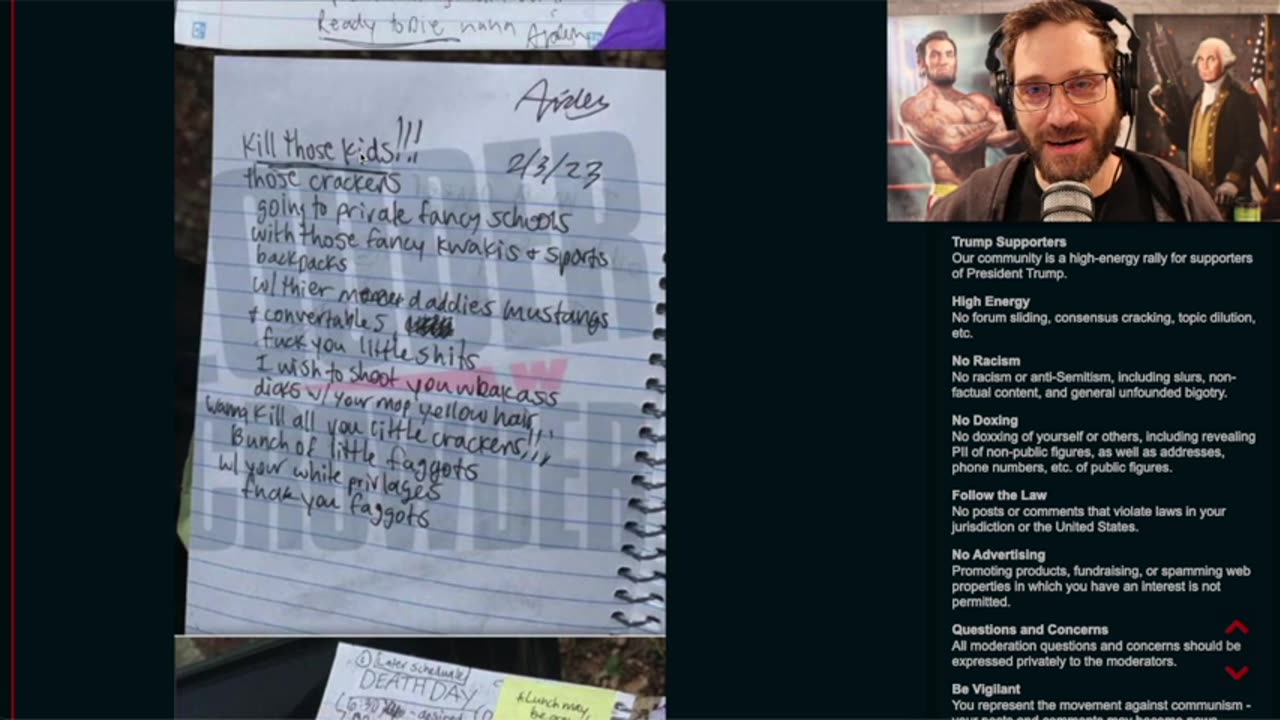 Ready to Die nana Aiden
Aiden
Kill those kids!!!
2/3/23
those crackers
going to private fancy schools
with those fancy kwakis + sports
backpacks
w/ thier daddies mustangs
+ convertables
fuck you little shits
I wish to shoot you weakass
dicks w/ your mop yellow hair
wanna kill all you little crackers!!!
Bunch of little faggots
w/ your white privlages
fuck you faggots
LOUDER
CROWDER
① Later schedule
DEATH DAY
6:30
*Lunch may
be
Trump Supporters
Our community is a high-energy rally for supporters
of President Trump.
High Energy
No forum sliding, consensus cracking, topic dilution,
etc.
No Racism
No racism or anti-Semitism, including slurs, non-
factual content, and general unfounded bigotry.
No Doxing
No doxxing of yourself or others, including revealing
PII of non-public figures, as well as addresses,
phone numbers, etc. of public figures.
Follow the Law
No posts or comments that violate laws in your
jurisdiction or the United States.
No Advertising
Promoting products, fundraising, or spamming web
properties in which you have an interest is not
permitted.
Questions and Concerns
All moderation questions and concerns should be
expressed privately to the moderators.
Be Vigilant
You represent the movement against communism -
your posts and comments may become news